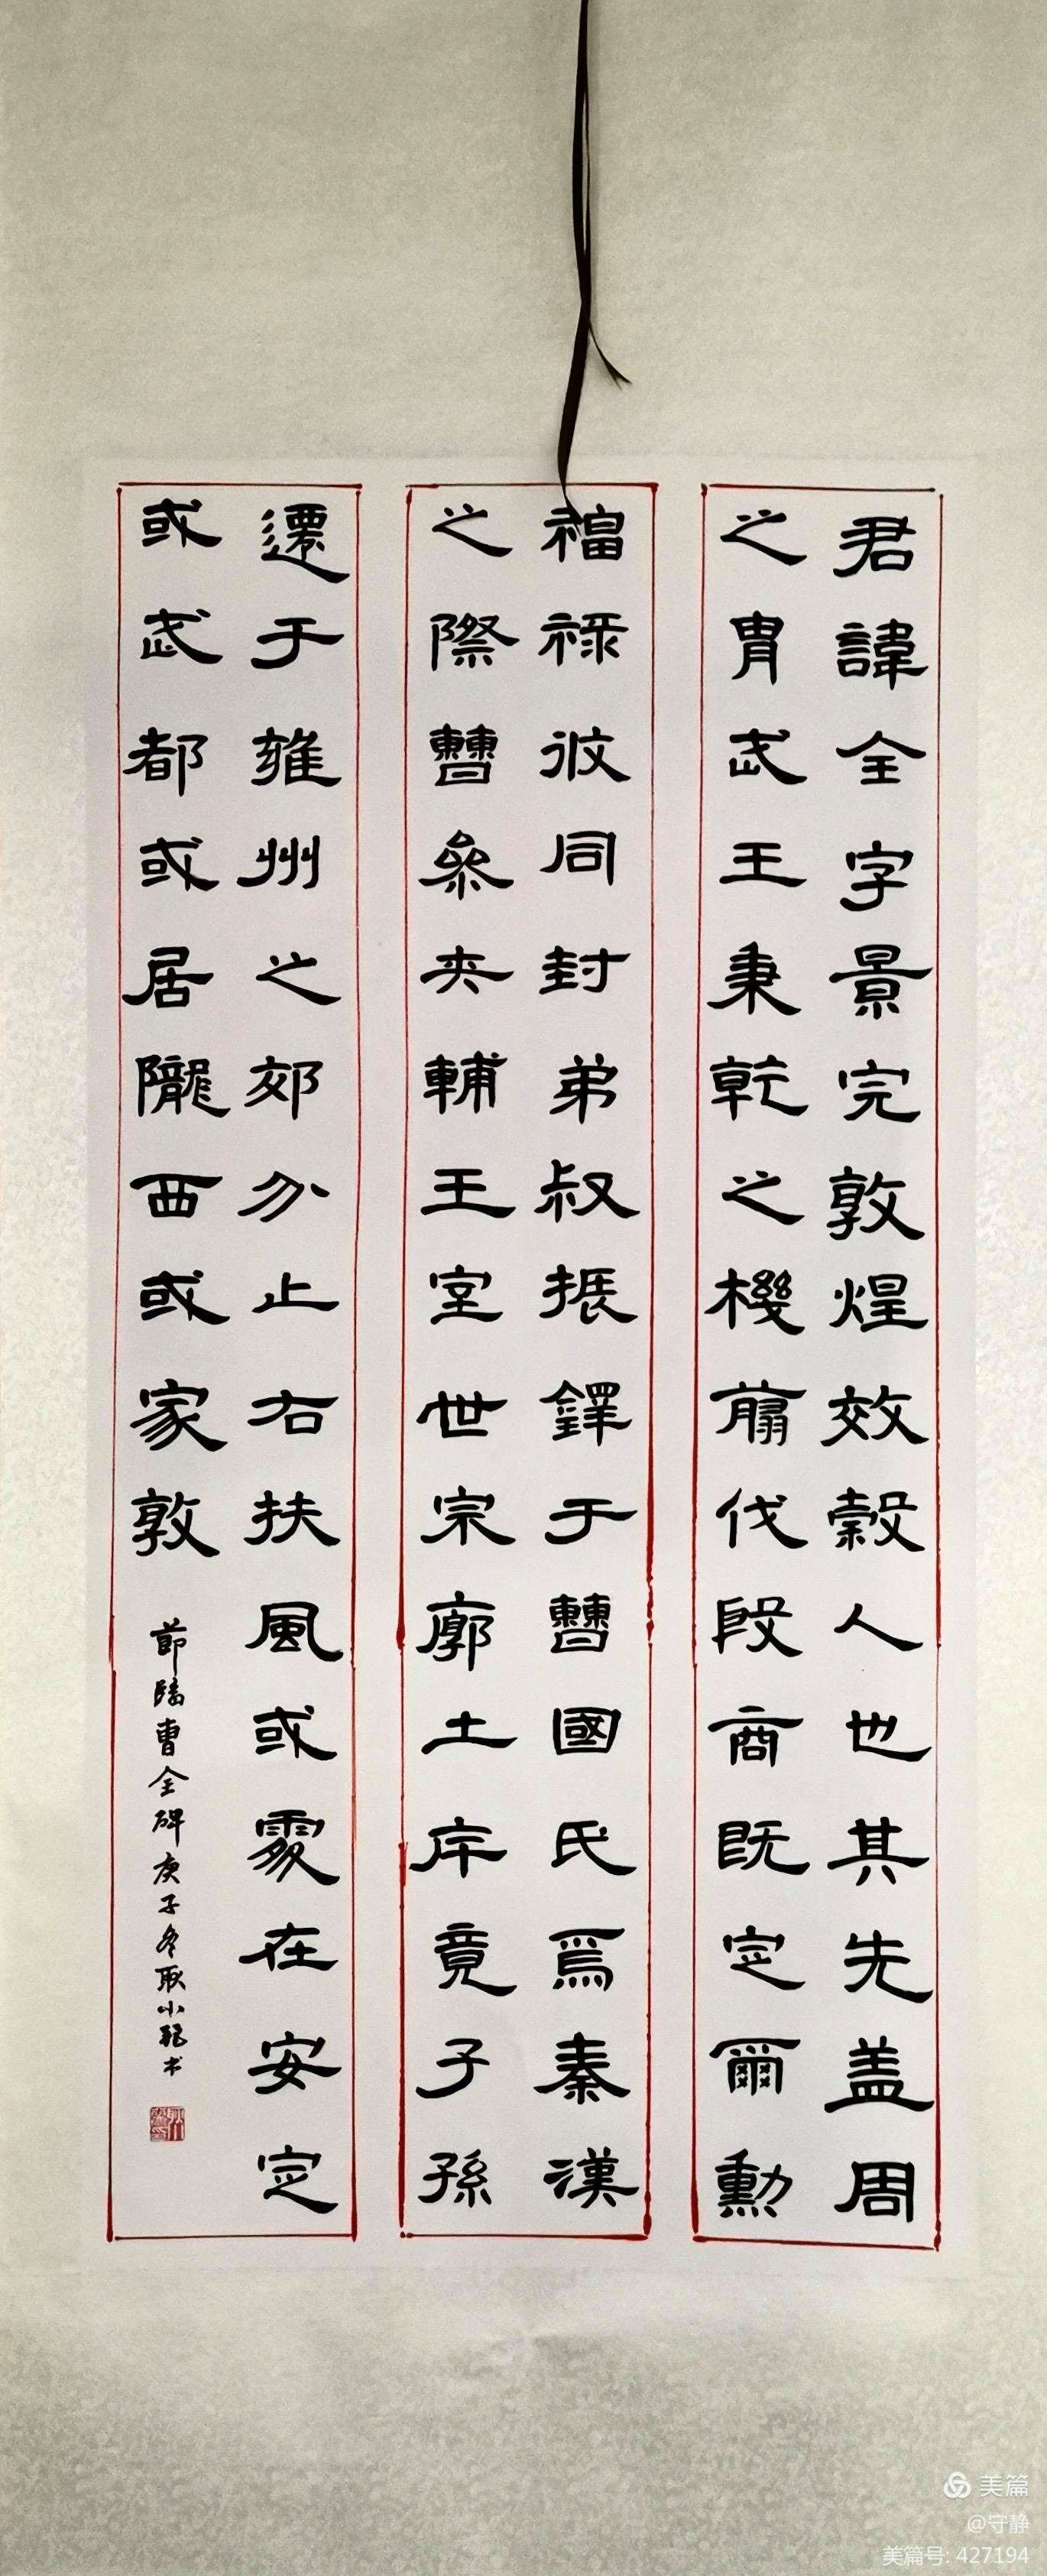 君諱全字景完敦煌效穀人也其先盖周
之胄武王秉乾之機翦伐殷商既定爾勳
福祿攸同封弟叔振鐸于曹國氏焉秦漢
之際曹參夾輔王室世宗廓土斥竟子孫
遷于雍州之郊分止右扶風或處在安定
或武都或居隴西或家敦
節臨曹全碑庚子冬耿小艳书
美篇
@守静
美篇号: 427194